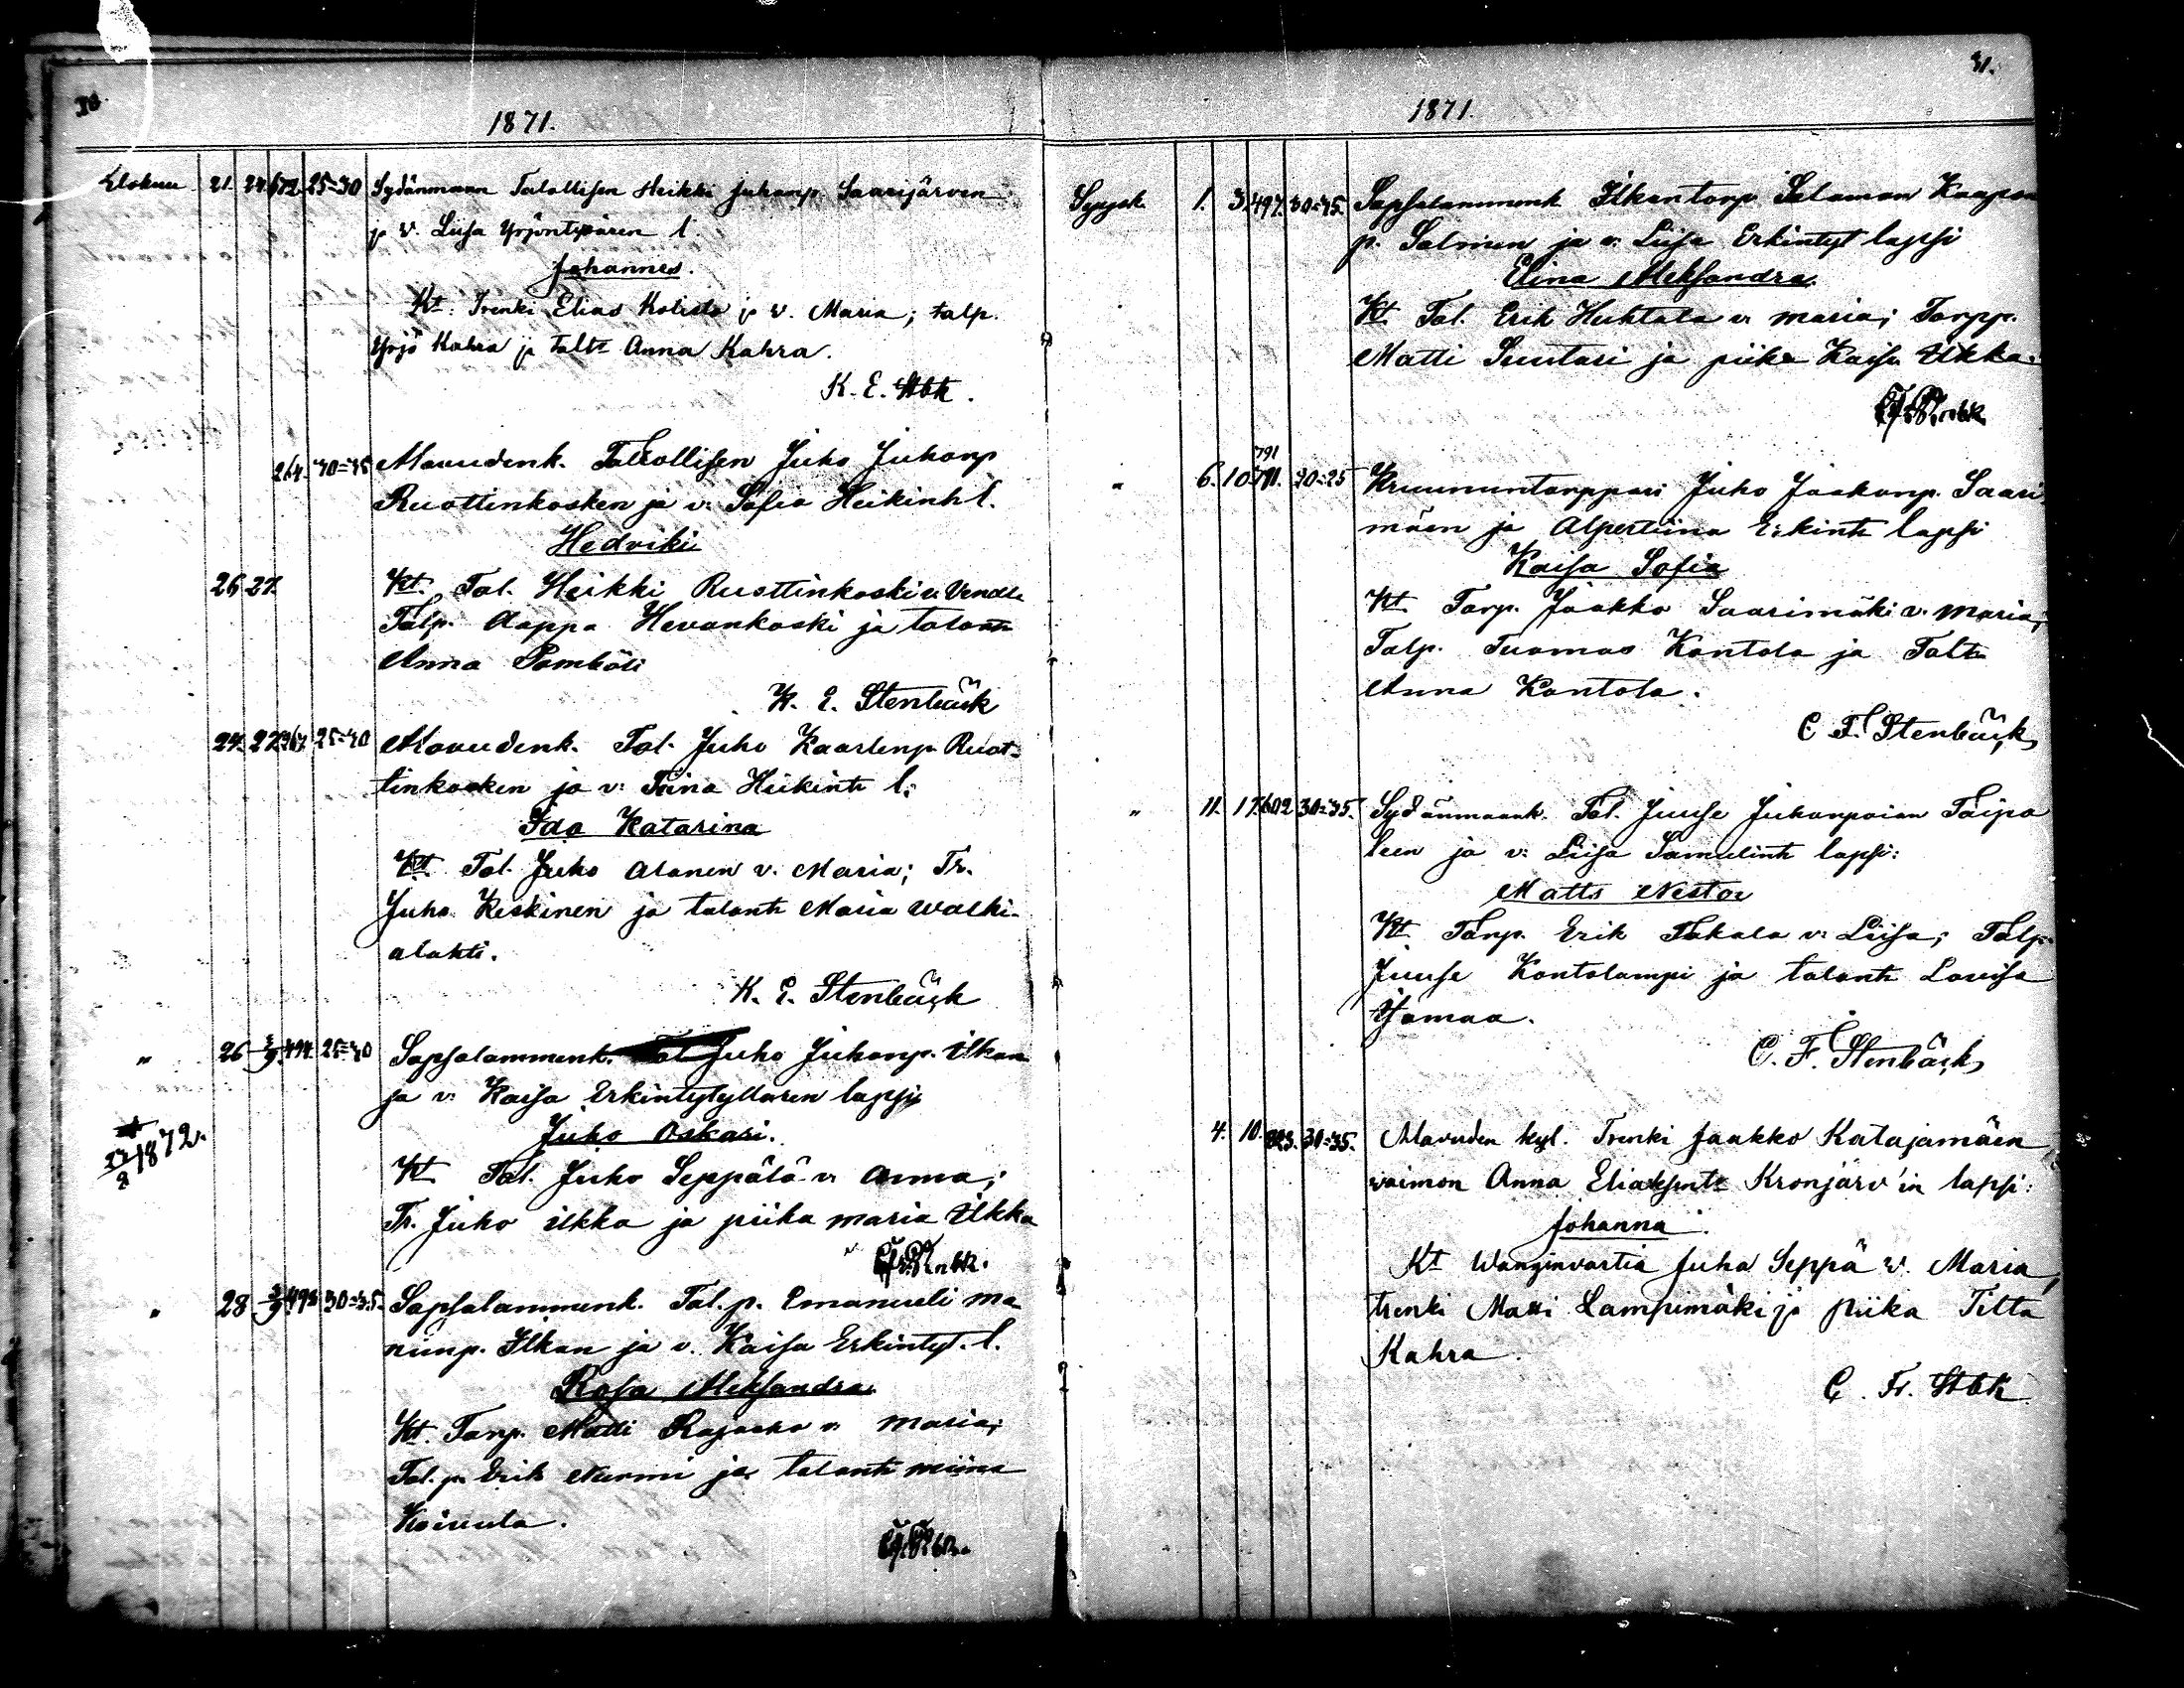 30.
1871.
Elokuu 21. 24. 672. 25=30 Sydänmaan Talollisen Heikki Juhanp. Saarijärven
ja v. Liisa Yrjöntyttären l.
Johannes.
Kt. Trenki Elias Koli ja v. Maria; talp.
Yrjö Kahra ja talt. Anna Kahra.
K. E. Stbk.
264. 30=35 Alavudenk. Talollisen Juho Juhanp
Ruottinkosken ja v: Sofia Heikinh l.
Hedviki
26 27. Kt. Tal. Heikki Ruottinkoski v. Vendla
Talp. Aappa Hevankoski ja talont
Anna Pambäli
K. E. Stenbäck
24. 27. 267. 25=30 Alavudenk. Tal. Juho Kaarlenp. Ruot-
tinkosken ja v: Tiina Heikint l:
Ida Katarina
Kt. Tal. Juho Alanen v. Maria; Tr.
Juho Keskinen ja talont Maria Walki-
alahti.
K. E. Stenbäck
" 26 3/9 494. 25=30 Sapsalammenk. Juho Juhanp. Ilkan
ja v: Kaisa Erkintytyttären lapsi
1872.
Juho Oskari.
Kt Tal. Juho Seppälä v. Anna;
Tr. Juho Ilkka ja piika Maria Ilkka
" 28 3/9 498 30=35. Sapsalammenk. Tal. p. Emanueli Ma-
niinp. Ilkan ja v. Kaisa Erkintyt. l.
Rosa Aleksandra
Kt. Tarp. Matti Rajaoho v. Maria;
Tal. p. Erik Nurmi ja talont Miina
Koivuta.
31.
1871.
Syysk. 1. 3. 497. 30=35. Sapsalammenk Ilkantorp. Salamon Kaapon
p. Salmien ja v: Liisa Erkintyt lapsi
Elina Aleksandra
Kt. Tal. Erik Huhtala v. Maria; Torpp.
Matti Suutari ja piika Kaisa Ilkka.
791
" 6. 10. 791. 20=25 Kruununtorppari Juho Jaakonp. Saari
mäen ja Alpertiina Erkint lapsi
Kaisa Sofia
Kt. Tarp. Jaakko Saarimäki v. Maria;
Talp. Tuomas Kontola ja Talt
Anna Kontola.
C F. Stenbäck
" 11. 17. 602 30=35. Sydänmaank. Tal. Juuse Juhanpoian Taipa
leen ja v: Liisa Samulint lapsi:
Matts Nestor
Kt. Tarp. Erik Takala v: Liisa; Talp.
Juuse Kontolampi ja talont Lovisa
Yömaa.
C. F. Stenbäck
4. 10. 323. 30=35. Alavuden kyl. Trenki Jaakko Katajamäen
vaimon Anna Eliaksent. Kronjärv'in lapsi:
Johanna.
Kt Wanginvartia Juha Seppä v. Maria,
trenki Matti Lampimäki ja piika Tilta
Kahra.
C. Fr. Stbk